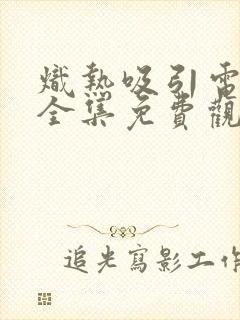 熾熱吸引電
全集免費觀
追光寫影工作